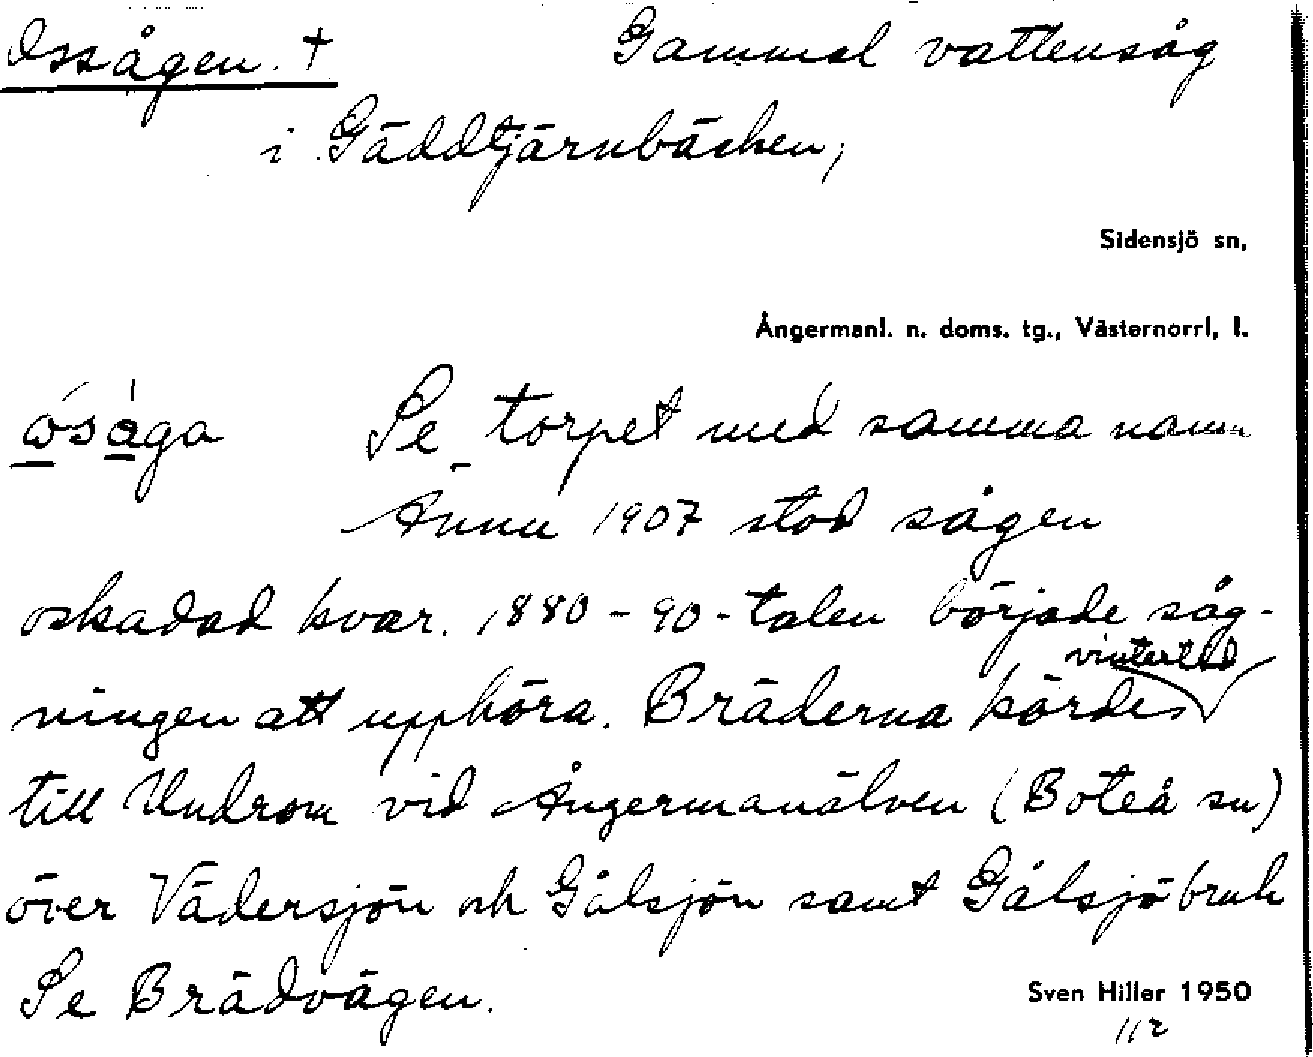 Ossågen. † Gammal vattensåg
i Gäddtjärnbäcken,
Sidensjö sn,
Ångermanl. n. doms. tg., Västernorrl. l.
ósàga Se torpet med samma namn
Ännu 1907 stod sågen
oskadad kvar. 1880-90-talen började såg-
vintertid
ningen att upphöra. Bräderna kördes
till Undrom vid Ångermanälven (Boteå sn)
över Vädersjön och Gålsjön samt Gålsjöbruk
Se Brädvägen.
Sven Hiller 1950
112